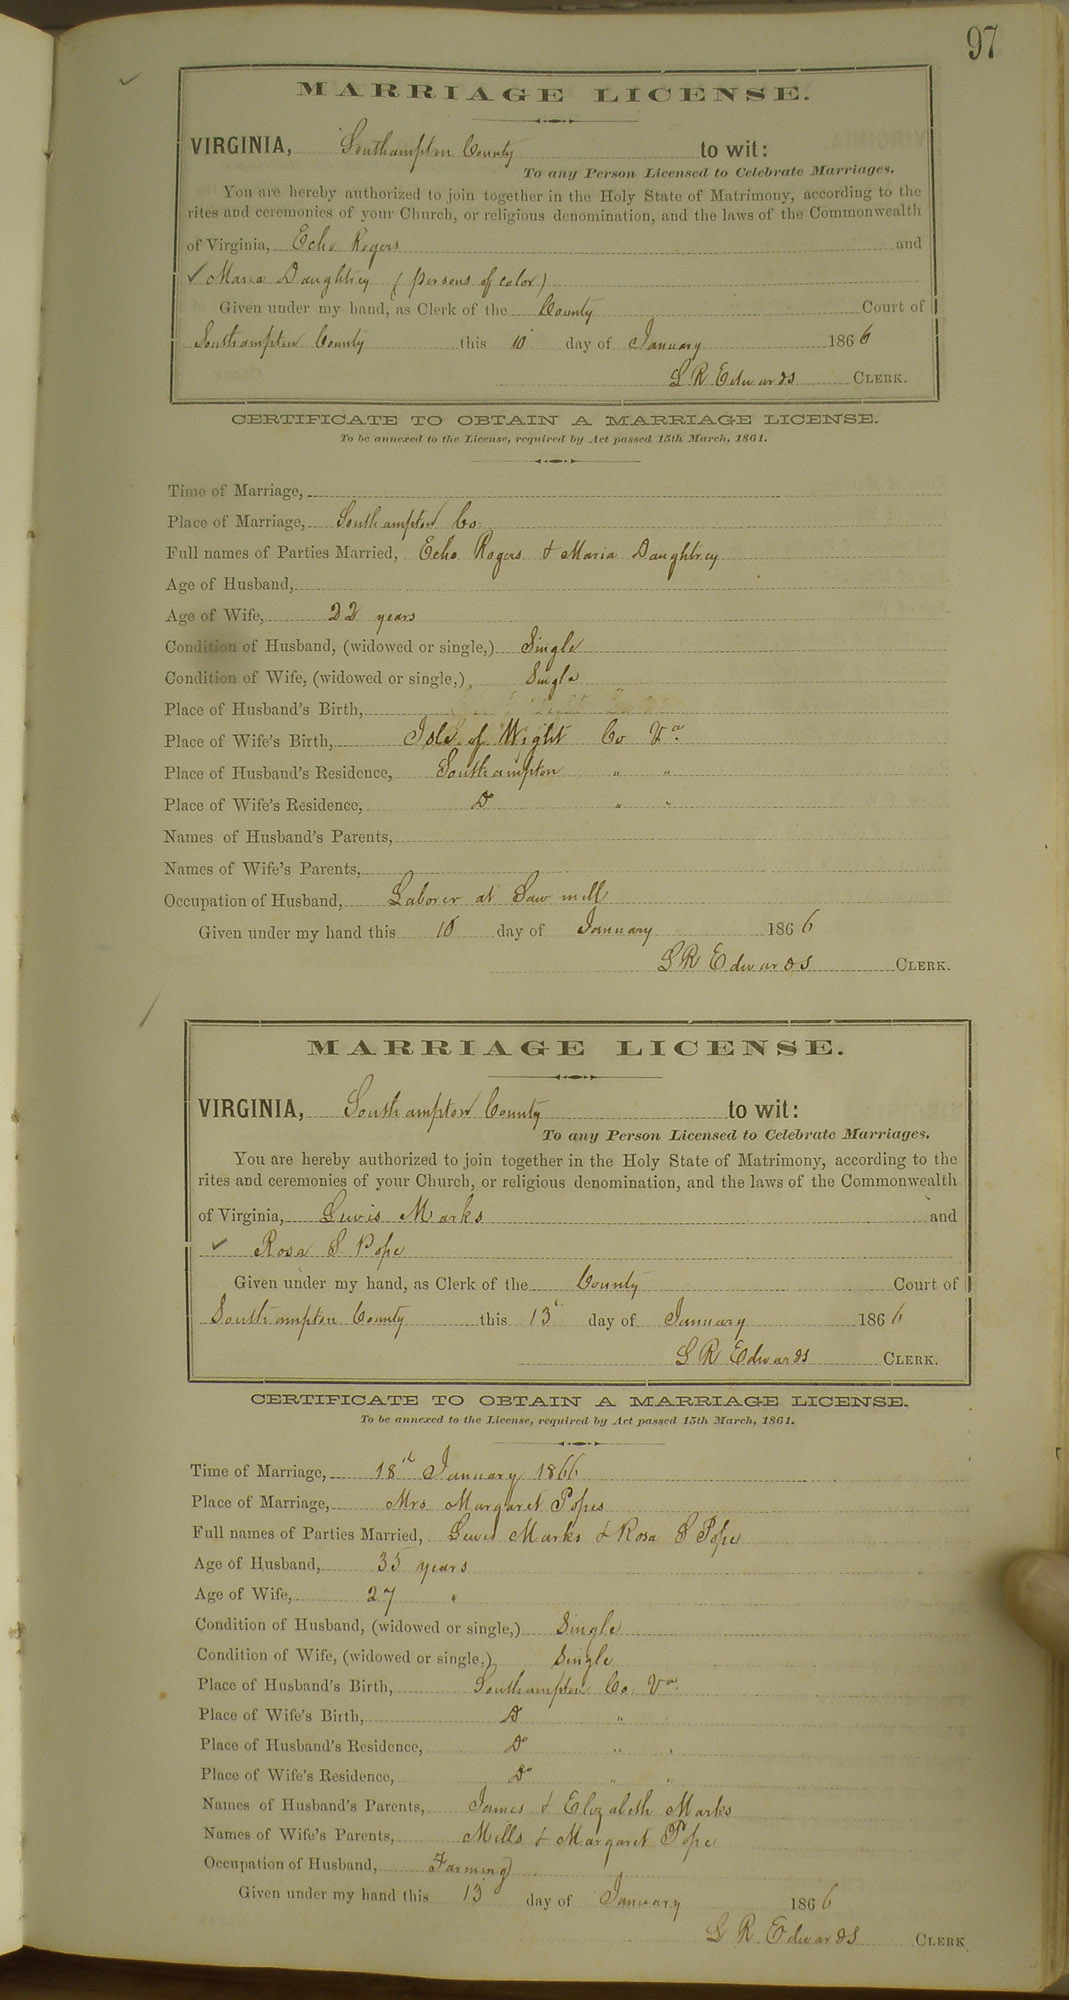 97
MARRIAGE LICENSE.
VIRGINIA, Southampton County to wit:
To any Person Licensed to Celebrate Marriages.
You are hereby authorized to join together in the Holy State of Matrimony, according to the
rites and ceremonies of your Church, or religious denomination, and the laws of the Commonwealth
of Virginia, Echo Rogers and
✓ Maria Daughtrey (persons of color)
Given under my hand, as Clerk of the County Court of
Southampton County this 10 day of January 1866
L R Edwards CLERK.
CERTIFICATE TO OBTAIN A MARRIAGE LICENSE.
To be annexed to the License, required by Act passed 15th March, 1861.
Time of Marriage,
Place of Marriage, Southampton Co.
Full names of Parties Married, Echo Rogers & Maria Daughtrey
Age of Husband,
Age of Wife, 22 years
Condition of Husband, (widowed or single,) Single
Condition of Wife, (widowed or single,) Single
Place of Husband's Birth,
Place of Wife's Birth, Isle of Wight Co Va.
Place of Husband's Residence, Southampton " "
Place of Wife's Residence, Do " "
Names of Husband's Parents,
Names of Wife's Parents,
Occupation of Husband, Laborer at Saw mill
Given under my hand this 10 day of January 1866
L R Edwards CLERK.
MARRIAGE LICENSE.
VIRGINIA, Southampton County to wit:
To any Person Licensed to Celebrate Marriages.
You are hereby authorized to join together in the Holy State of Matrimony, according to the
rites and ceremonies of your Church, or religious denomination, and the laws of the Commonwealth
of Virginia, Lewis Marks and
✓ Rosa S Pope
Given under my hand, as Clerk of the County Court of
Southampton County this 13th day of January 1866
L R Edwards CLERK.
CERTIFICATE TO OBTAIN A MARRIAGE LICENSE.
To be annexed to the License, required by Act passed 15th March, 1861.
Time of Marriage, 18th January 1866
Place of Marriage, Mrs Margaret Popes
Full names of Parties Married, Lewis Marks & Rosa S Pope
Age of Husband, 35 years
Age of Wife, 27 "
Condition of Husband, (widowed or single,) Single
Condition of Wife, (widowed or single,) Single
Place of Husband's Birth, Southampton Co. Va.
Place of Wife's Birth, Do " "
Place of Husband's Residence, Do " "
Place of Wife's Residence, Do " "
Names of Husband's Parents, James & Elizabeth Marks
Names of Wife's Parents, Mills & Margaret Pope
Occupation of Husband, Farming
Given under my hand this 13 day of January 1866
L R Edwards CLERK